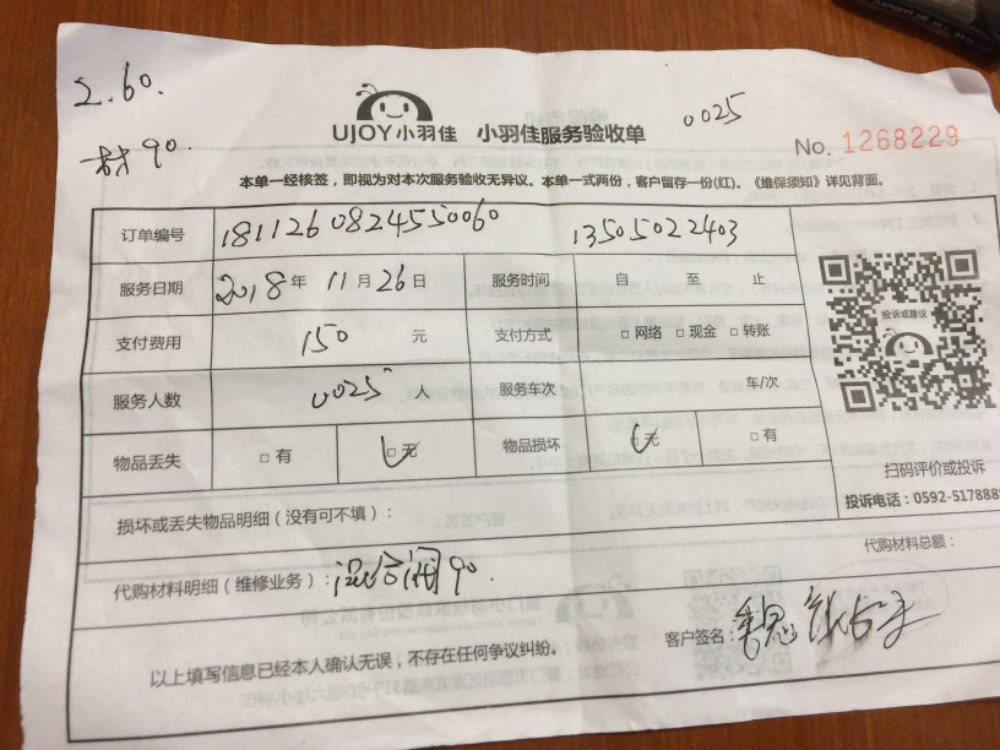 2.60.
材90.
UJOY小羽佳 小羽佳服务验收单
0025
No. 1268229
本单一经核签，即视为对本次服务验收无异议。本单一式两份，客户留存一份(红)。《维保须知》详见背面。
订单编号 18112608245550060 13505022403
服务日期 2018年 11月26日 服务时间 自 至 止
支付费用 150 元 支付方式 □ 网络 □ 现金 □ 转账
服务人数 0025 人 服务车次 车/次
物品丢失 □ 有 □ 无 物品损坏 □ 无 □ 有
投诉或建议
扫码评价或投诉
投诉电话：0592-517888
损坏或丢失物品明细（没有可不填）：
代购材料明细（维修业务）：混合阀90.
代购材料总额：
客户签名：
以上填写信息已经本人确认无误，不存在任何争议纠纷。